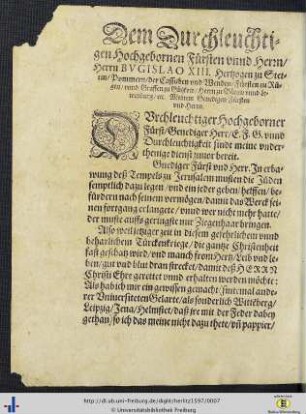 Dem Durchleuchti-
gen Hochgebornen Fürsten vnnd Herrn/
Herrn BVGISLAO XIII. Hertzogen zu Stet-
tin/ Pommern/ der Cassuben vnd Wenden/ Fürsten zu Rü-
gen/ vnnd Graffen zu Gützkow/ Herrn zu
Meinem Genedigen Fürsten
vnd Herrn.
DVrchleuchtiger Hochgeborner
Fürst/ Genediger Herr/ E. F. G. vnnd
Durchleuchtigkeit sindt meine vnder-
thenige dienst zuuor bereit.
Gnediger Fürst vnd Herr. In erba-
wung deß Tempels zu Jerusalem musten die Jüden
semptlich dazu legen/ vnd ein jeder geben/ helffen/ be-
fürdern nach seinem vermögen/ damit das Werck sei-
nen fortgang erlangete/ vnnd wer nicht mehr hatte/
der muste auffs geringste nur Ziegenhaar bringen.
Also weil jtziger zeit in diesem gefehrlichem vnnd
beharlichem Türckenkriege/ die gantze Christenheit
fast geschatzt wird/ vnd manch from Hertz/ Leib vnd le-
ben/ gut vnd blut dran strecket/ damit deß HERRN
Christi Ehre gerettet vnnd erhalten werden möchte:
Als hab ich mir ein gewissen gemacht/ (sintemal ande-
rer Vniuersiteten Gelarte/ als sonderlich Witteberg/
Leipzig/ Jena/ Helmstet/ daß jre mit der Feder dabey
gethan/ so ich das meine nicht dazu thete/ vñ pappier/
http://dl.ub.uni-freiburg.de/diglit/herlitz1597/0007
© Universitätsbibliothek Freiburg